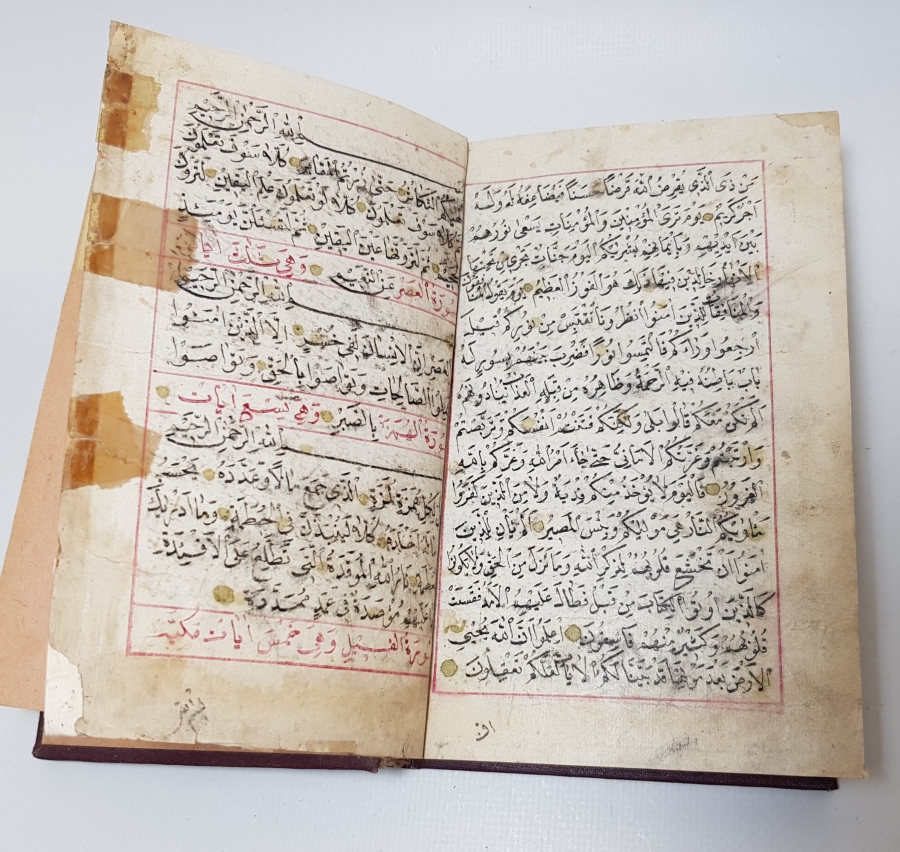 من ذى الذى يقرض الله قرضا حسنا فيضاعفه له وله
اجر كريم يوم ترى المؤمنين والمؤمنات يسعى نورهم
بين ايديهم وبايمانهم بشريكم اليوم جنات تجرى من تحتها
الانهار خالدين فيها ذلك هو الفوز العظيم يوم يقول المنافقون
والمنافقات للذين امنوا انظرونا نقتبس من نوركم قيل
ارجعوا وراءكم فالتمسوا نورا فضرب بينهم بسور له
باب باطنه فيه الرحمة وظاهره من قبله العذاب ينادونهم
الم نكن معكم قالوا بلى ولكنكم فتنتم انفسكم وتربصتم
وارتبتم وغرتكم الامانى حتى جاء امر الله وغركم بالله
الغرور فاليوم لا يؤخذ منكم فدية ولا من الذين كفروا
مأويكم النار هى موليكم وبئس المصير الم يأن للذين
امنوا ان تخشع قلوبهم لذكر الله وما نزل من الحق ولا يكونوا
كالذين اوتوا الكتاب من قبل فطال عليهم الامد فقست
قلوبهم وكثير منهم فاسقون اعلموا ان الله يحيى
الارض بعد موتها قد بينا لكم الايات لعلكم تعقلون
الله الرحمن الرحيم
التكاثر حتى زرتم المقابر كلا سوف تعلمون
كلا سوف تعلمون كلا لو تعلمون علم اليقين لترون
ثم لترونها عين اليقين ثم لتسئلن يومئذ
عن النعيم
سورة العصر وهى ثلث ايات
الله الرحمن الرحيم
والعصر ان الانسان لفى خسر الا الذين امنوا
وعملوا الصالحات وتواصوا بالحق وتواصوا
بالصبر
سورة الهمزة وهى تسع ايات
الله الرحمن الرحيم
لكل همزة لمزة الذى جمع مالا وعدده يحسب
ماله اخلده كلا لينبذن فى الحطمة وما ادريك
نار الله الموقدة التى تطلع على الافئدة
عليهم موصدة فى عمد ممددة
سورة الفيل وهى خمس ايات مكية